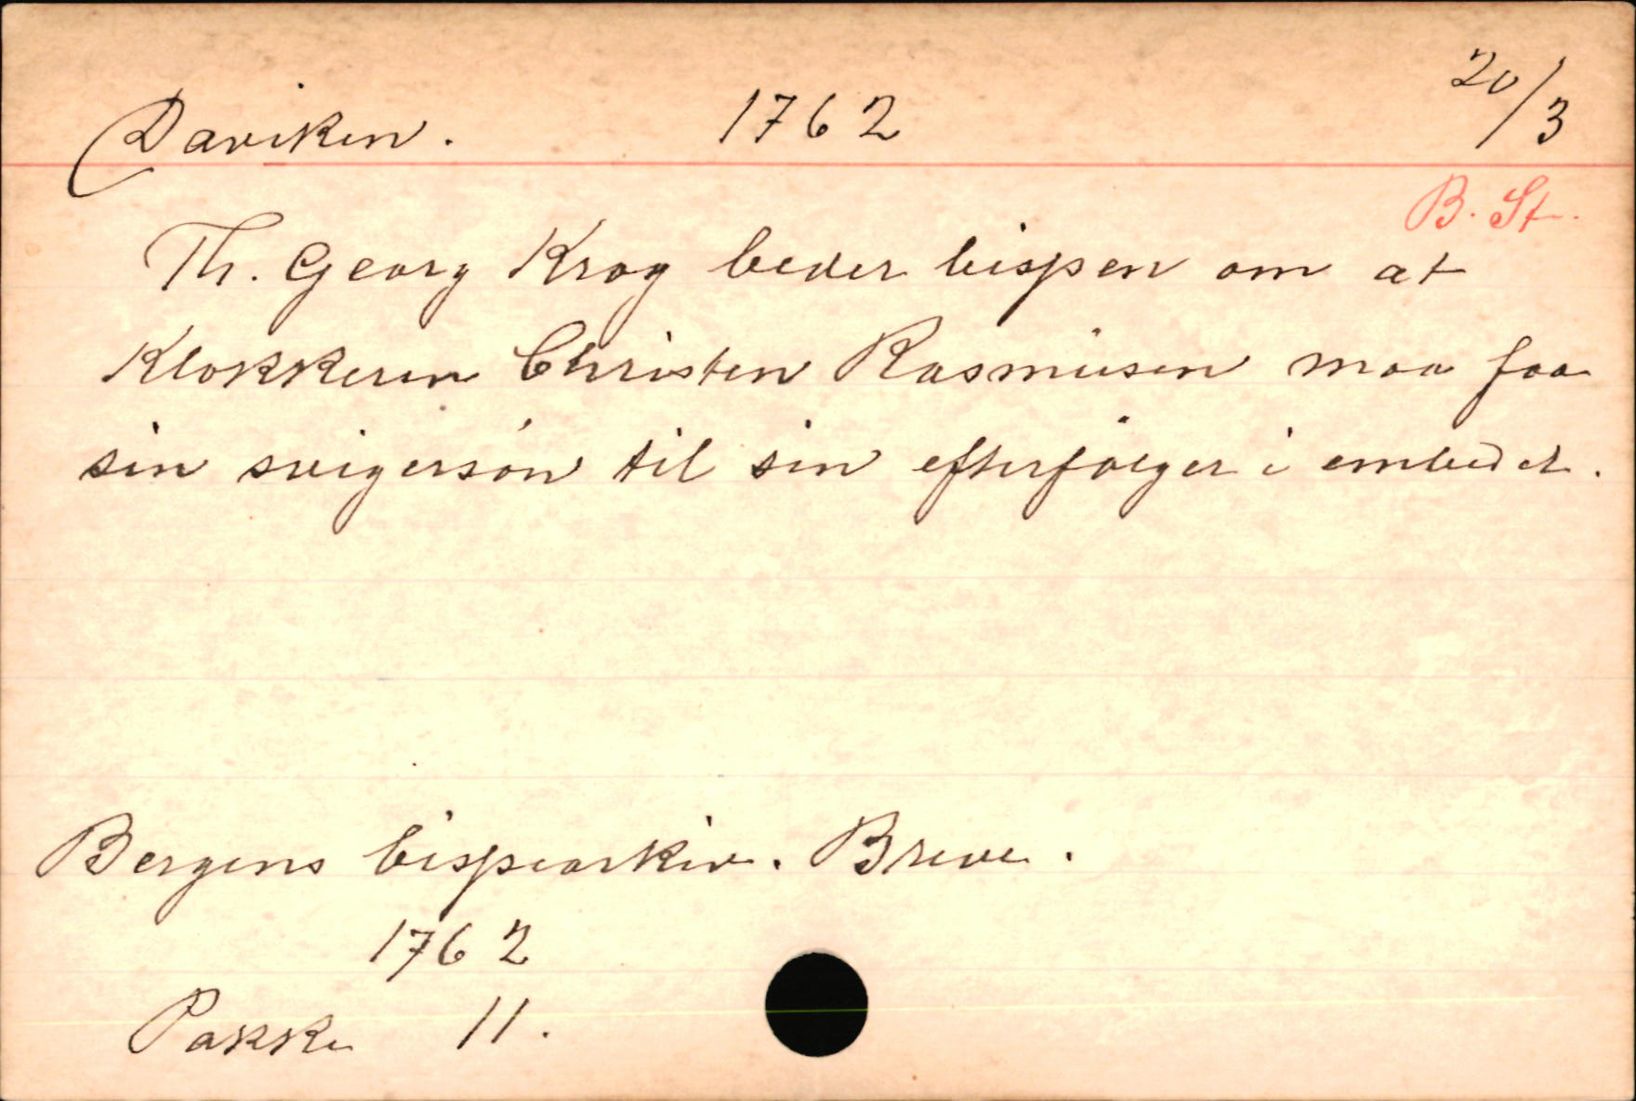 Daviken. 1762 20/3
B. St.
Th. Georg Krog beder bispen om at
Klokkeren Christen Rasmusen maa faa
sin svigersøn til sin efterfølger i embedet.
Bergens bispearkiv. Breve.
1762
Pakke 11.